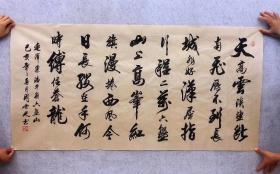 天高雲淡望断
南飛雁不到長
城非好漢屈指
行程二萬六盤
山上高峰紅
旗漫捲西風今
日長纓在手何
時縛住蒼龍
毛澤東清平樂六盤山
己亥年月書